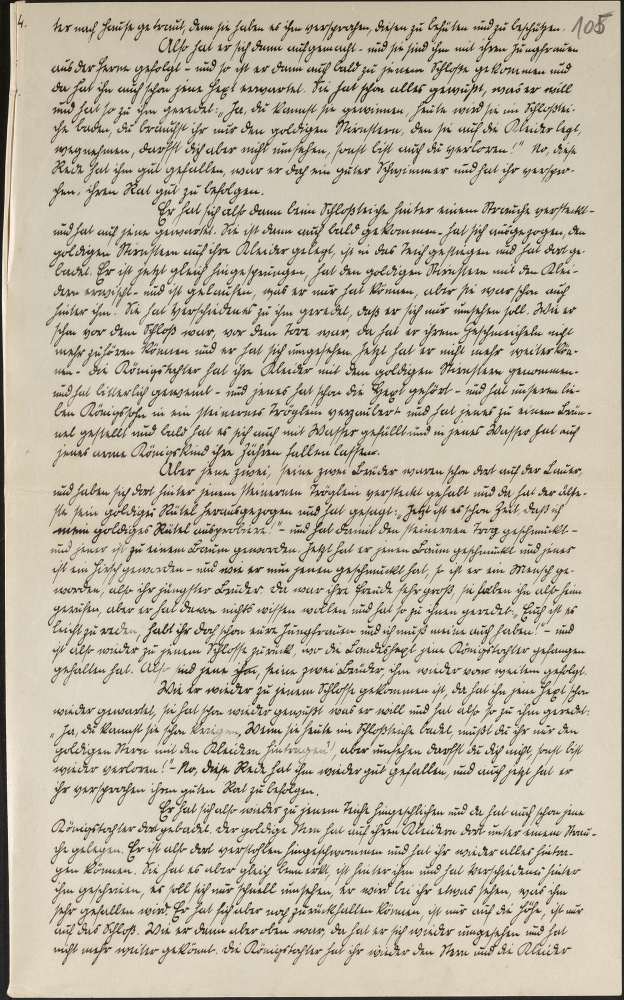 4. 105
ter nach Hause getraut, denn sie haben es ihm versprochen, diesen zu behüten und zu beschützen.
Also hat er sich dann aufgemacht - und sie sind ihm mit ihren Jungfrauen
aus der Ferne gefolgt - und so ist er dann auch bald zu jenem Schlosse gekommen und
da hat ihn auch schon jene Hex erwartet. Sie hat schon alles gewußt, was er will
und hat so zu ihm geredet: „Ja, du kannst sie gewinnen, heute wird sie im Schloßtei-
che baden, du brauchst ihr nur den goldigen Stirnstern, den sie auf die Kleider legt,
wegnehmen, darfst dich aber nicht umsehen, sonst bist auch du verloren!" No, diese
Rede hat ihm gut gefallen, war er doch ein guter Schwimmer und hat ihr verspro-
chen, ihren Rat gut zu befolgen.
Er hat sich also dann beim Schloßteiche hinter einem Strauche versteckt -
und hat auf jene gewartet. Sie ist dann auch bald gekommen - hat sich ausgezogen, den
goldigen Stirnstern auf ihre Kleider gelegt, ist in das Teich gestiegen und hat dort ge-
badet. Er ist jetzt gleich hingesprungen, hat den goldigen Stirnstern mit den Klei-
dern erwischt - und ist gelaufen, was er nur hat können, aber sie war schon auch
hinter ihm! Sie hat verschiedenes zu ihm geredet, daß er sich nur umsehen soll. Wie er
schon vor dem Schloß war, vor dem Tore war, da hat er ihrem Geschmeicheln nicht
mehr zuhören können und er hat sich umgesehen. Jetzt hat er nicht mehr weiter kön-
nen - die Königstochter hat ihre Kleider mit dem goldigen Stirnstern genommen -
und hat bitterlich geweint - und jenes hat schon die Hex gehört - und hat unseren lie-
ben Königssohn in ein steinernes Tröglein verzaubert und hat jenes zu einem Brün-
nel gestellt und bald hat es sich auch mit Wasser gefüllt und in jenes Wasser hat auch
jenes arme Königskind ihre Zähren fallen lassen.
Aber jene zwei, seine zwei Brüder waren schon dort auf der Lauer,
und haben sich dort hinter jenem steinernen Tröglein versteckt gehabt und da hat der älte-
ste sein goldiges Rütel herausgezogen und hat gesagt: „Jetzt ist es schon Zeit, daß ich
mein goldiges Rütel ausprobiere!" - und hat damit den steinernen Trog geschmickt -
und jener ist zu einem Baum geworden. Jetzt hat er jenen Baum geschmickt und jener
ist ein Hirsch geworden - und wie er nun jenen geschmickt hat, so ist er ein Mensch ge-
worden, also ihr jüngster Bruder. Da war ihre Freude sehr groß, sie haben ihn also heim
gerufen, aber er hat davon nichts wissen wollen und hat so zu ihnen geredet: „Euch ist es
leicht zu reden, habt ihr doch schon eure Jungfrauen und ich muß meine auch haben!" - und
ist also wieder zu jenem Schlosse zurück, wo die Landeshext jene Königstochter gefangen
gehalten hat. Also sind jene seine zwei Brüder, ihm wieder von weitem gefolgt.
Wie er wieder zu jenem Schlosse gekommen ist, da hat ihn jene Hext schon
wieder gewartet, sie hat schon wieder gewußt was er will und hat also so zu ihm geredet:
„Ja, du kannst sie schon kriegen, Wenn sie heute im Schloßteiche badet, mußt du ihr nur den
goldigen Stern mit den Kleidern hintragen, aber umsehen darfst du dich nicht, sonst bist
wieder verloren!" - No, diese Rede hat ihm wieder gut gefallen, und auch jetzt hat er
ihr versprochen ihren guten Rat zu befolgen.
Er hat sich also wieder zu jenem Teiche hingeschlichen und da hat auch schon jene
Königstochter dort gebadet. Der goldige Stern hat auf ihren Kleidern dort unter einem Strau-
che gelegen. Er ist also dort verstohlen hingeschwommen und hat ihr wieder alles hintra-
gen können. Sie hat es aber gleich bemerkt, ist hinter ihm und hat verschiedenes hinter
ihm geschrieen, er soll sich nur schnell umsehen, er wird bei ihr etwas sehen, was ihm
sehr gefallen wird. Er hat sich aber noch zurückhalten können, ist nur auf die Höhe, ist nur
auf das Schloß. Wie er dann aber oben war, da hat er sich wieder umgesehen und hat
nicht mehr weiter gekonnt. Die Königstochter hat ihr wieder den Stern und die Kleider